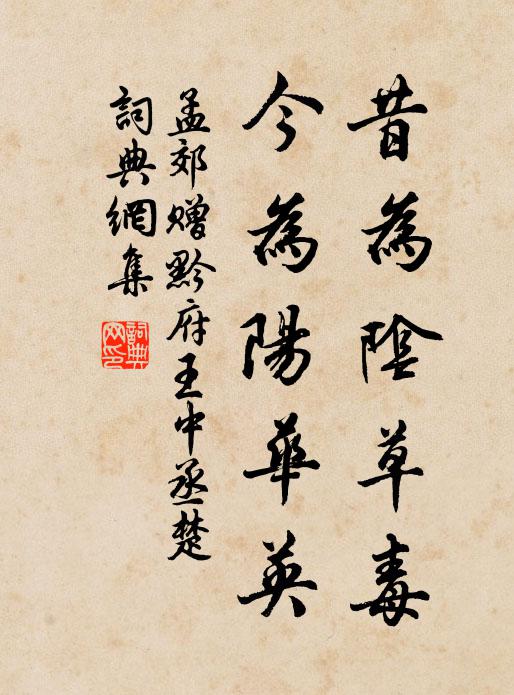 昔為陰草毒
今為陽華英
孟郊贈黔府王中丞楚
詞典網集
詞典網印